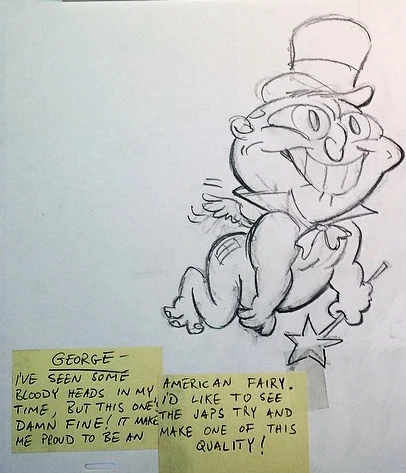 GEORGE -
I'VE SEEN SOME
BLOODY HEADS IN MY
TIME, BUT THIS ONE'S
DAMN FINE! IT MAKES
ME PROUD TO BE AN
AMERICAN FAIRY.
I'D LIKE TO SEE
THE JAPS TRY AND
MAKE ONE OF THIS
QUALITY!